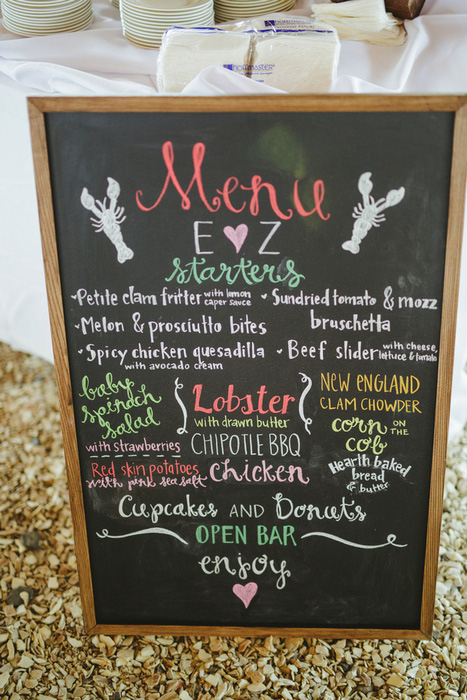 Menu
E Z
starters
Petite clam fritter with lemon caper sauce
Sundried tomato & mozz bruschetta
Melon & prosciutto bites
Spicy chicken quesadilla with avocado cream
Beef slider with cheese, lettuce & tomato
baby
spinach
salad
with strawberries
Red skin potatoes
with pink sea salt
Lobster
with drawn butter
CHIPOTLE BBQ
chicken
NEW ENGLAND
CLAM CHOWDER
corn ON THE
cob
Hearth baked
bread
& butter
Cupcakes AND Donuts
OPEN BAR
enjoy